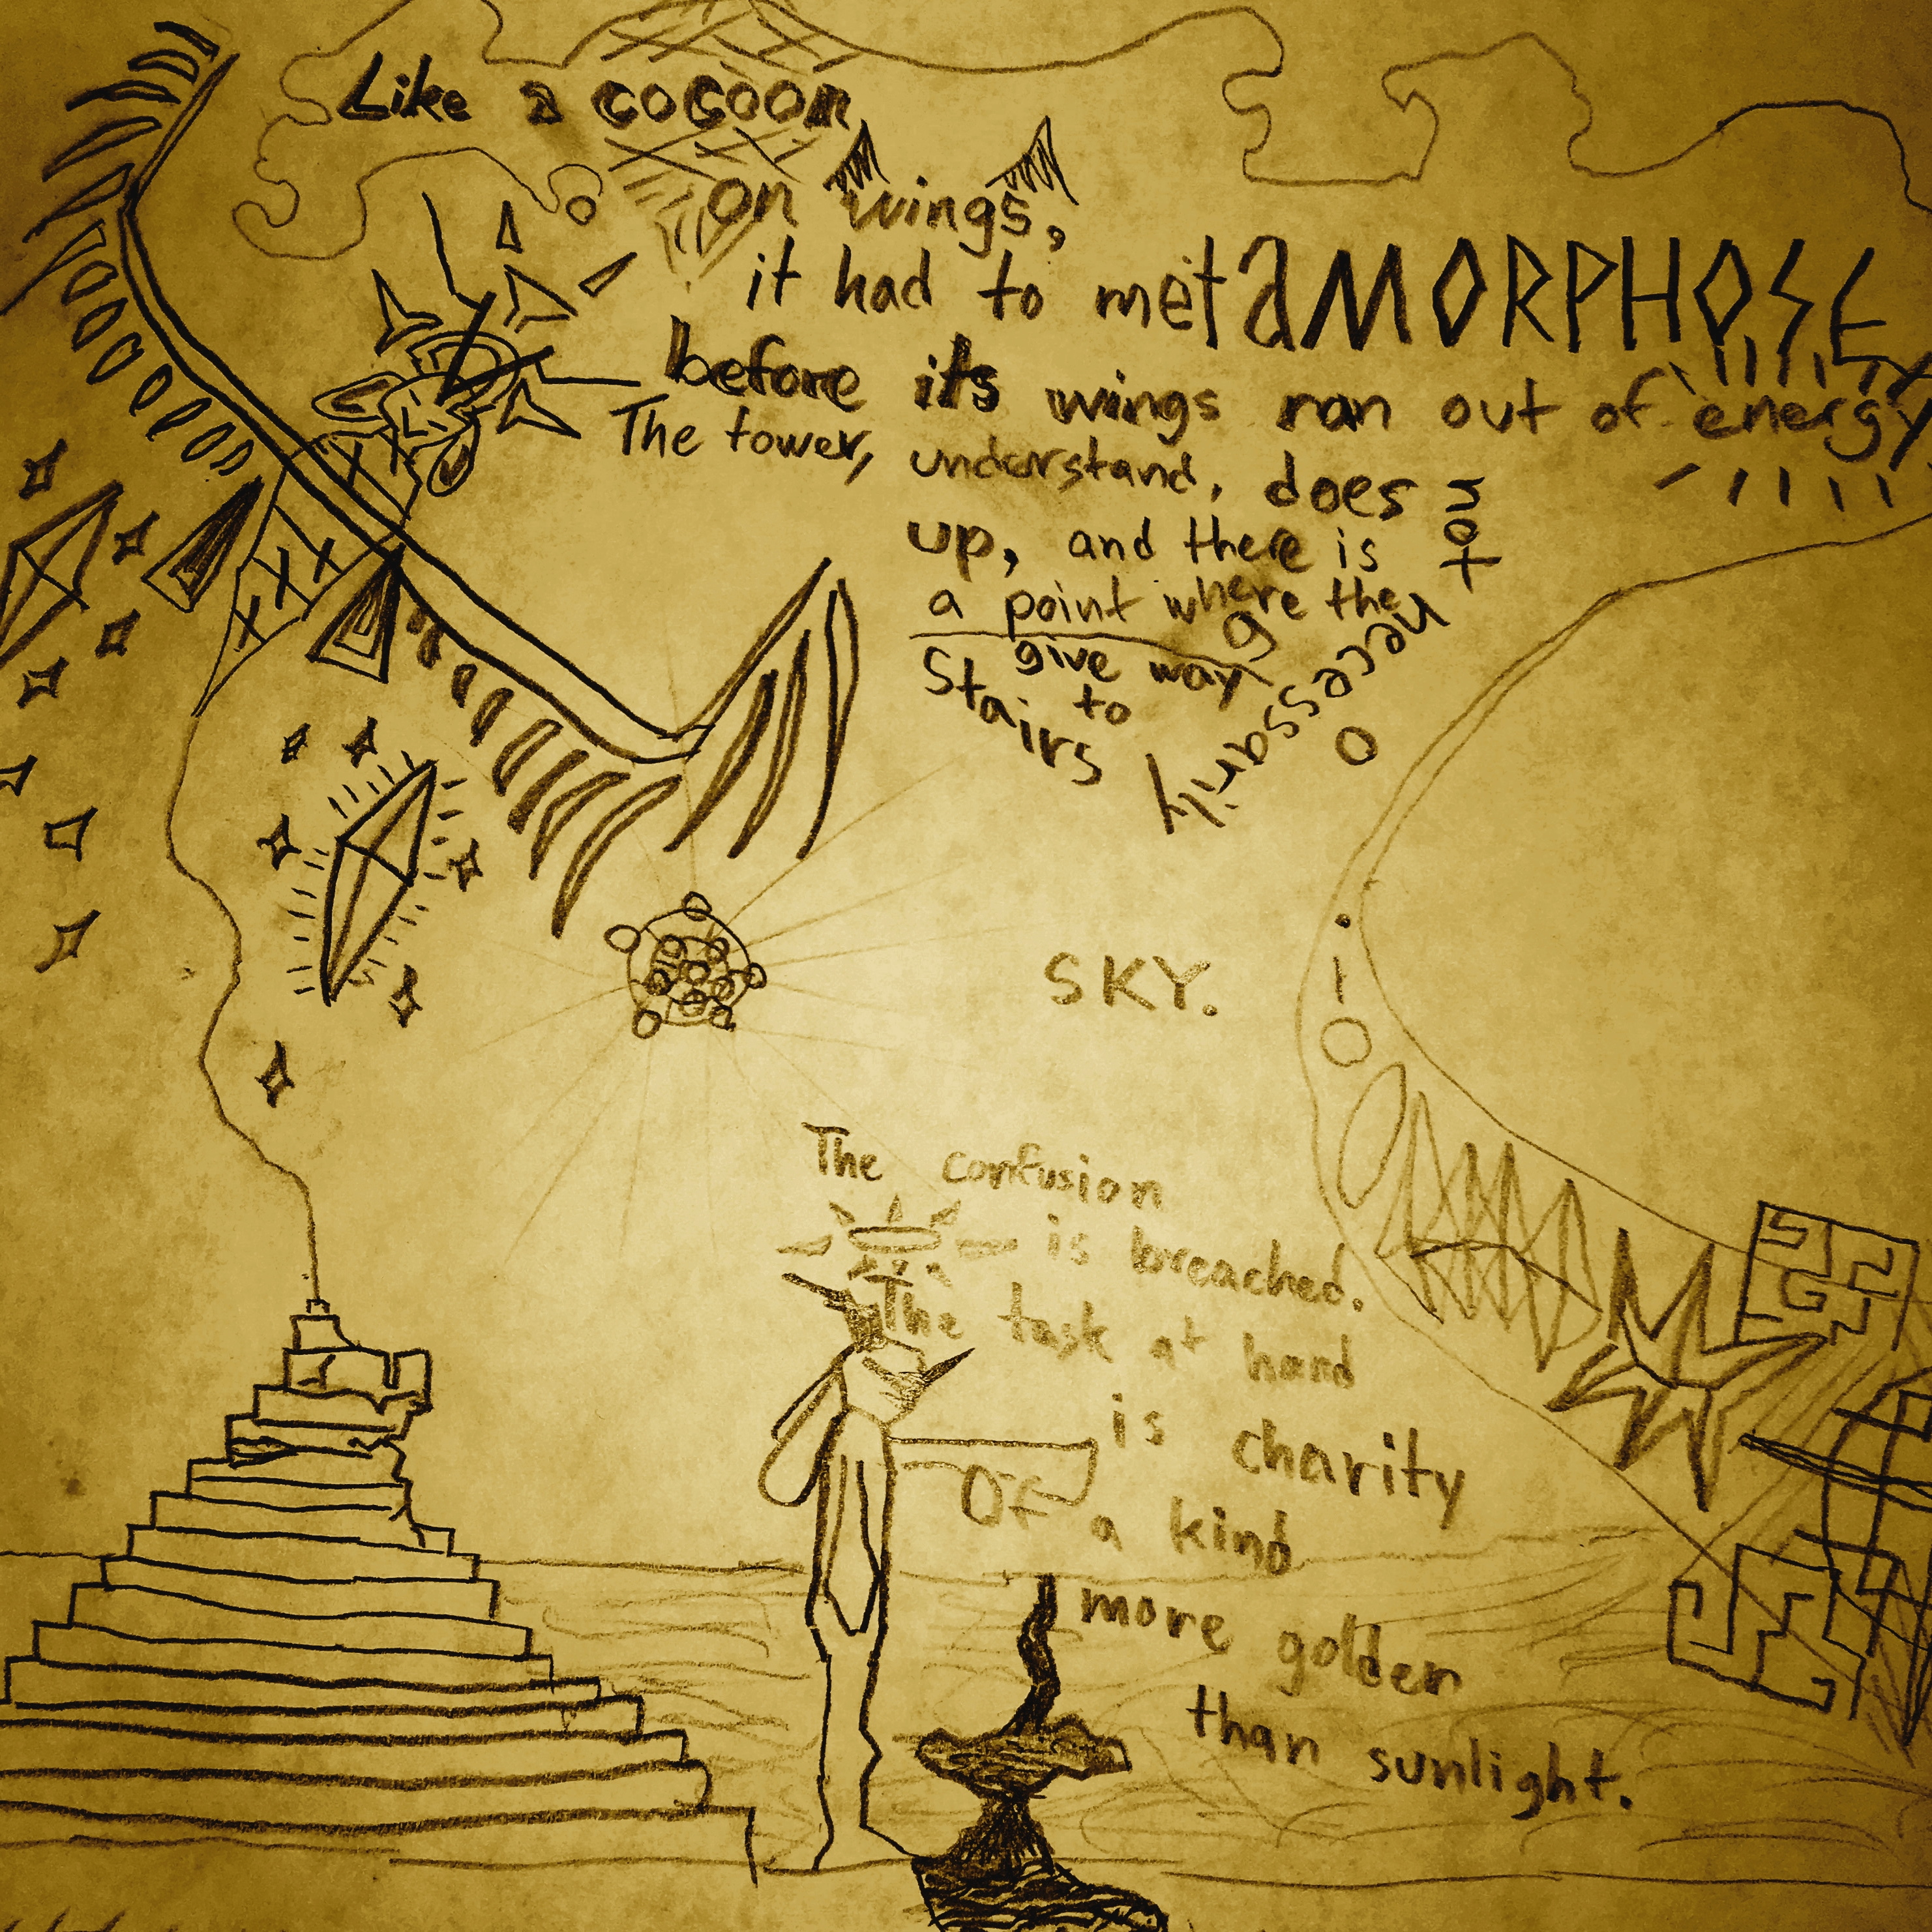 Like a cocoon
on wings,
it had to metAMORPHOSE
before its wings ran out of energy.
The tower, understand, does
not
necessarily
go
up, and there is
a point where the
Stairs
give way
to
SKY.
The confusion
is breached.
The task at hand
is charity
Of a kind
more golden
than sunlight.